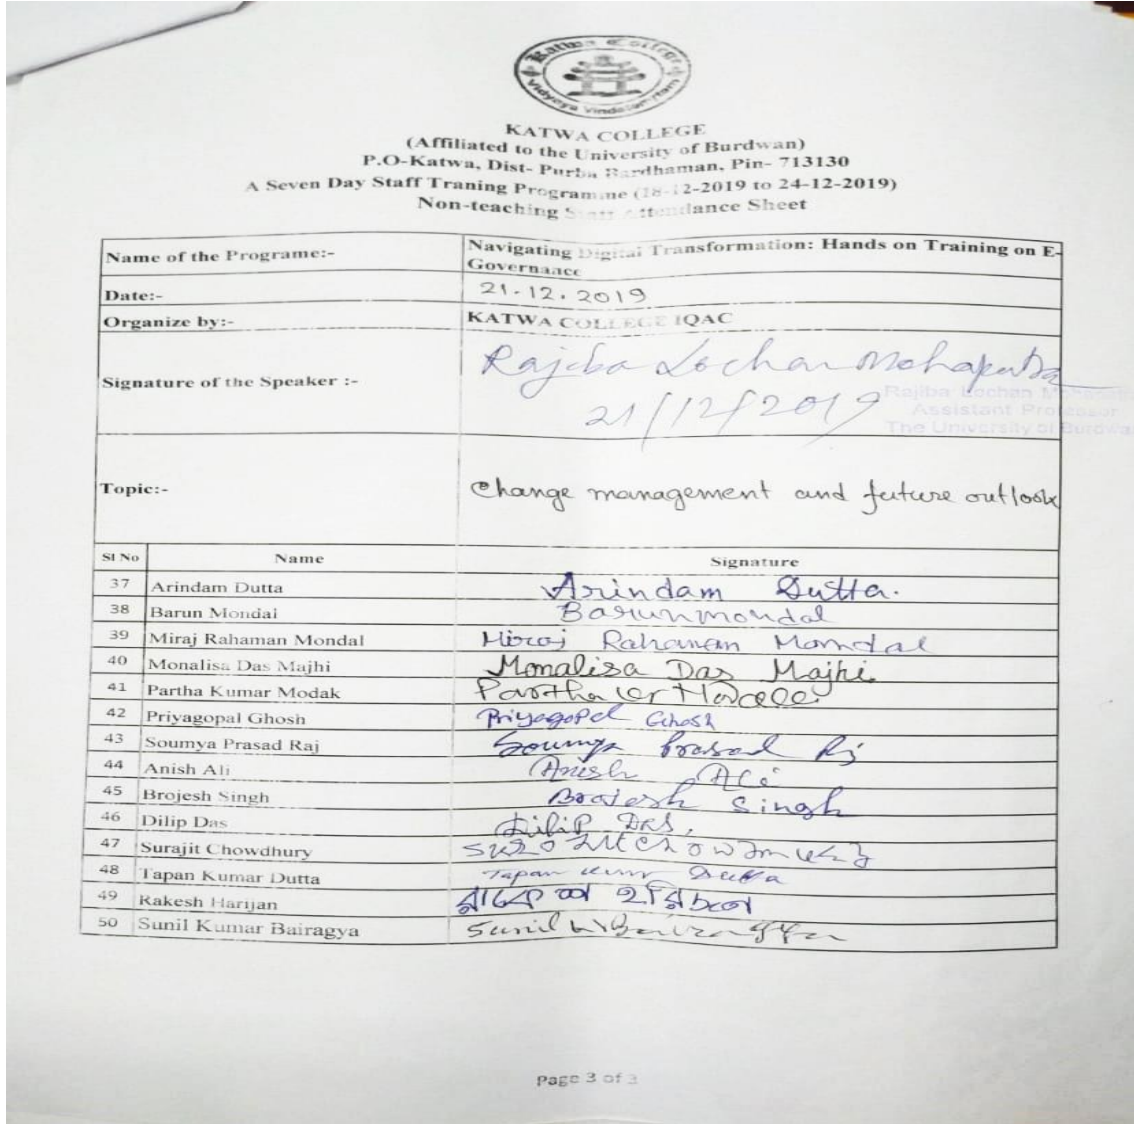 Katwa College
Vidyaya Vindate
KATWA COLLEGE
(Affiliated to the University of Burdwan)
P.O-Katwa, Dist- Purba Bardhaman, Pin- 713130
A Seven Day Staff Traning Programme (18-12-2019 to 24-12-2019)
Non-teaching Staff Attendance Sheet
Name of the Programe:- Navigating Digital Transformation: Hands on Training on E-
Governance
Date:- 21.12.2019
Organize by:- KATWA COLLEGE IQAC
Signature of the Speaker :- Rajiba Lochan Mohapatra
21/12/2019
Rajiba Lochan
Assistant Professor
The University of Burdwan
Topic:- Change management and future outlook
Sl No Name Signature
37 Arindam Dutta Arindam Dutta.
38 Barun Mondal Barun mondal
39 Miraj Rahaman Mondal Miraj Rahaman Mondal
40 Monalisa Das Majhi Monalisa Das Majhi
41 Partha Kumar Modak Partha Kr
42 Priyagopal Ghosh Priyagopal Ghosh
43 Soumya Prasad Raj Soumya Prasad Rj
44 Anish Ali Anish Ali
45 Brojesh Singh Brojesh Singh
46 Dilip Das Dilip Das,
47 Surajit Chowdhury
48 Tapan Kumar Dutta Tapan Kumar Dutta
49 Rakesh Harijan রাকেশ হরিজন
50 Sunil Kumar Bairagya Sunil Kr Bairagya
Page 3 of 3